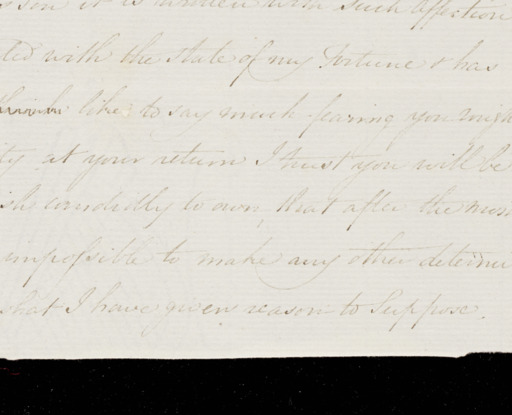 son it is written with such affection
ted with the state of my Fortune & has
like to say much fearing you migh
ity at your return I trust you will be
ish candidly to own, that after the mos
impossible to make any other determi
that I have given reason to Suppose.